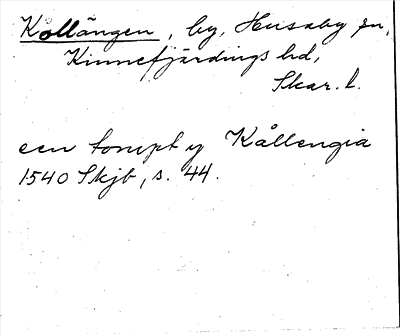 Kållängen, by, Husaby sn,
Kinnefjärdings hd,
Skar. l.
een tompt y Kållengia
1540 Skjb, s. 44.